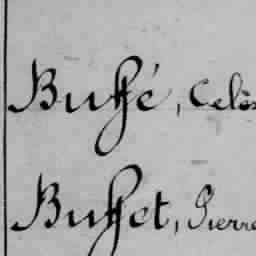 Buffé, Celes
Buffet, Pierre